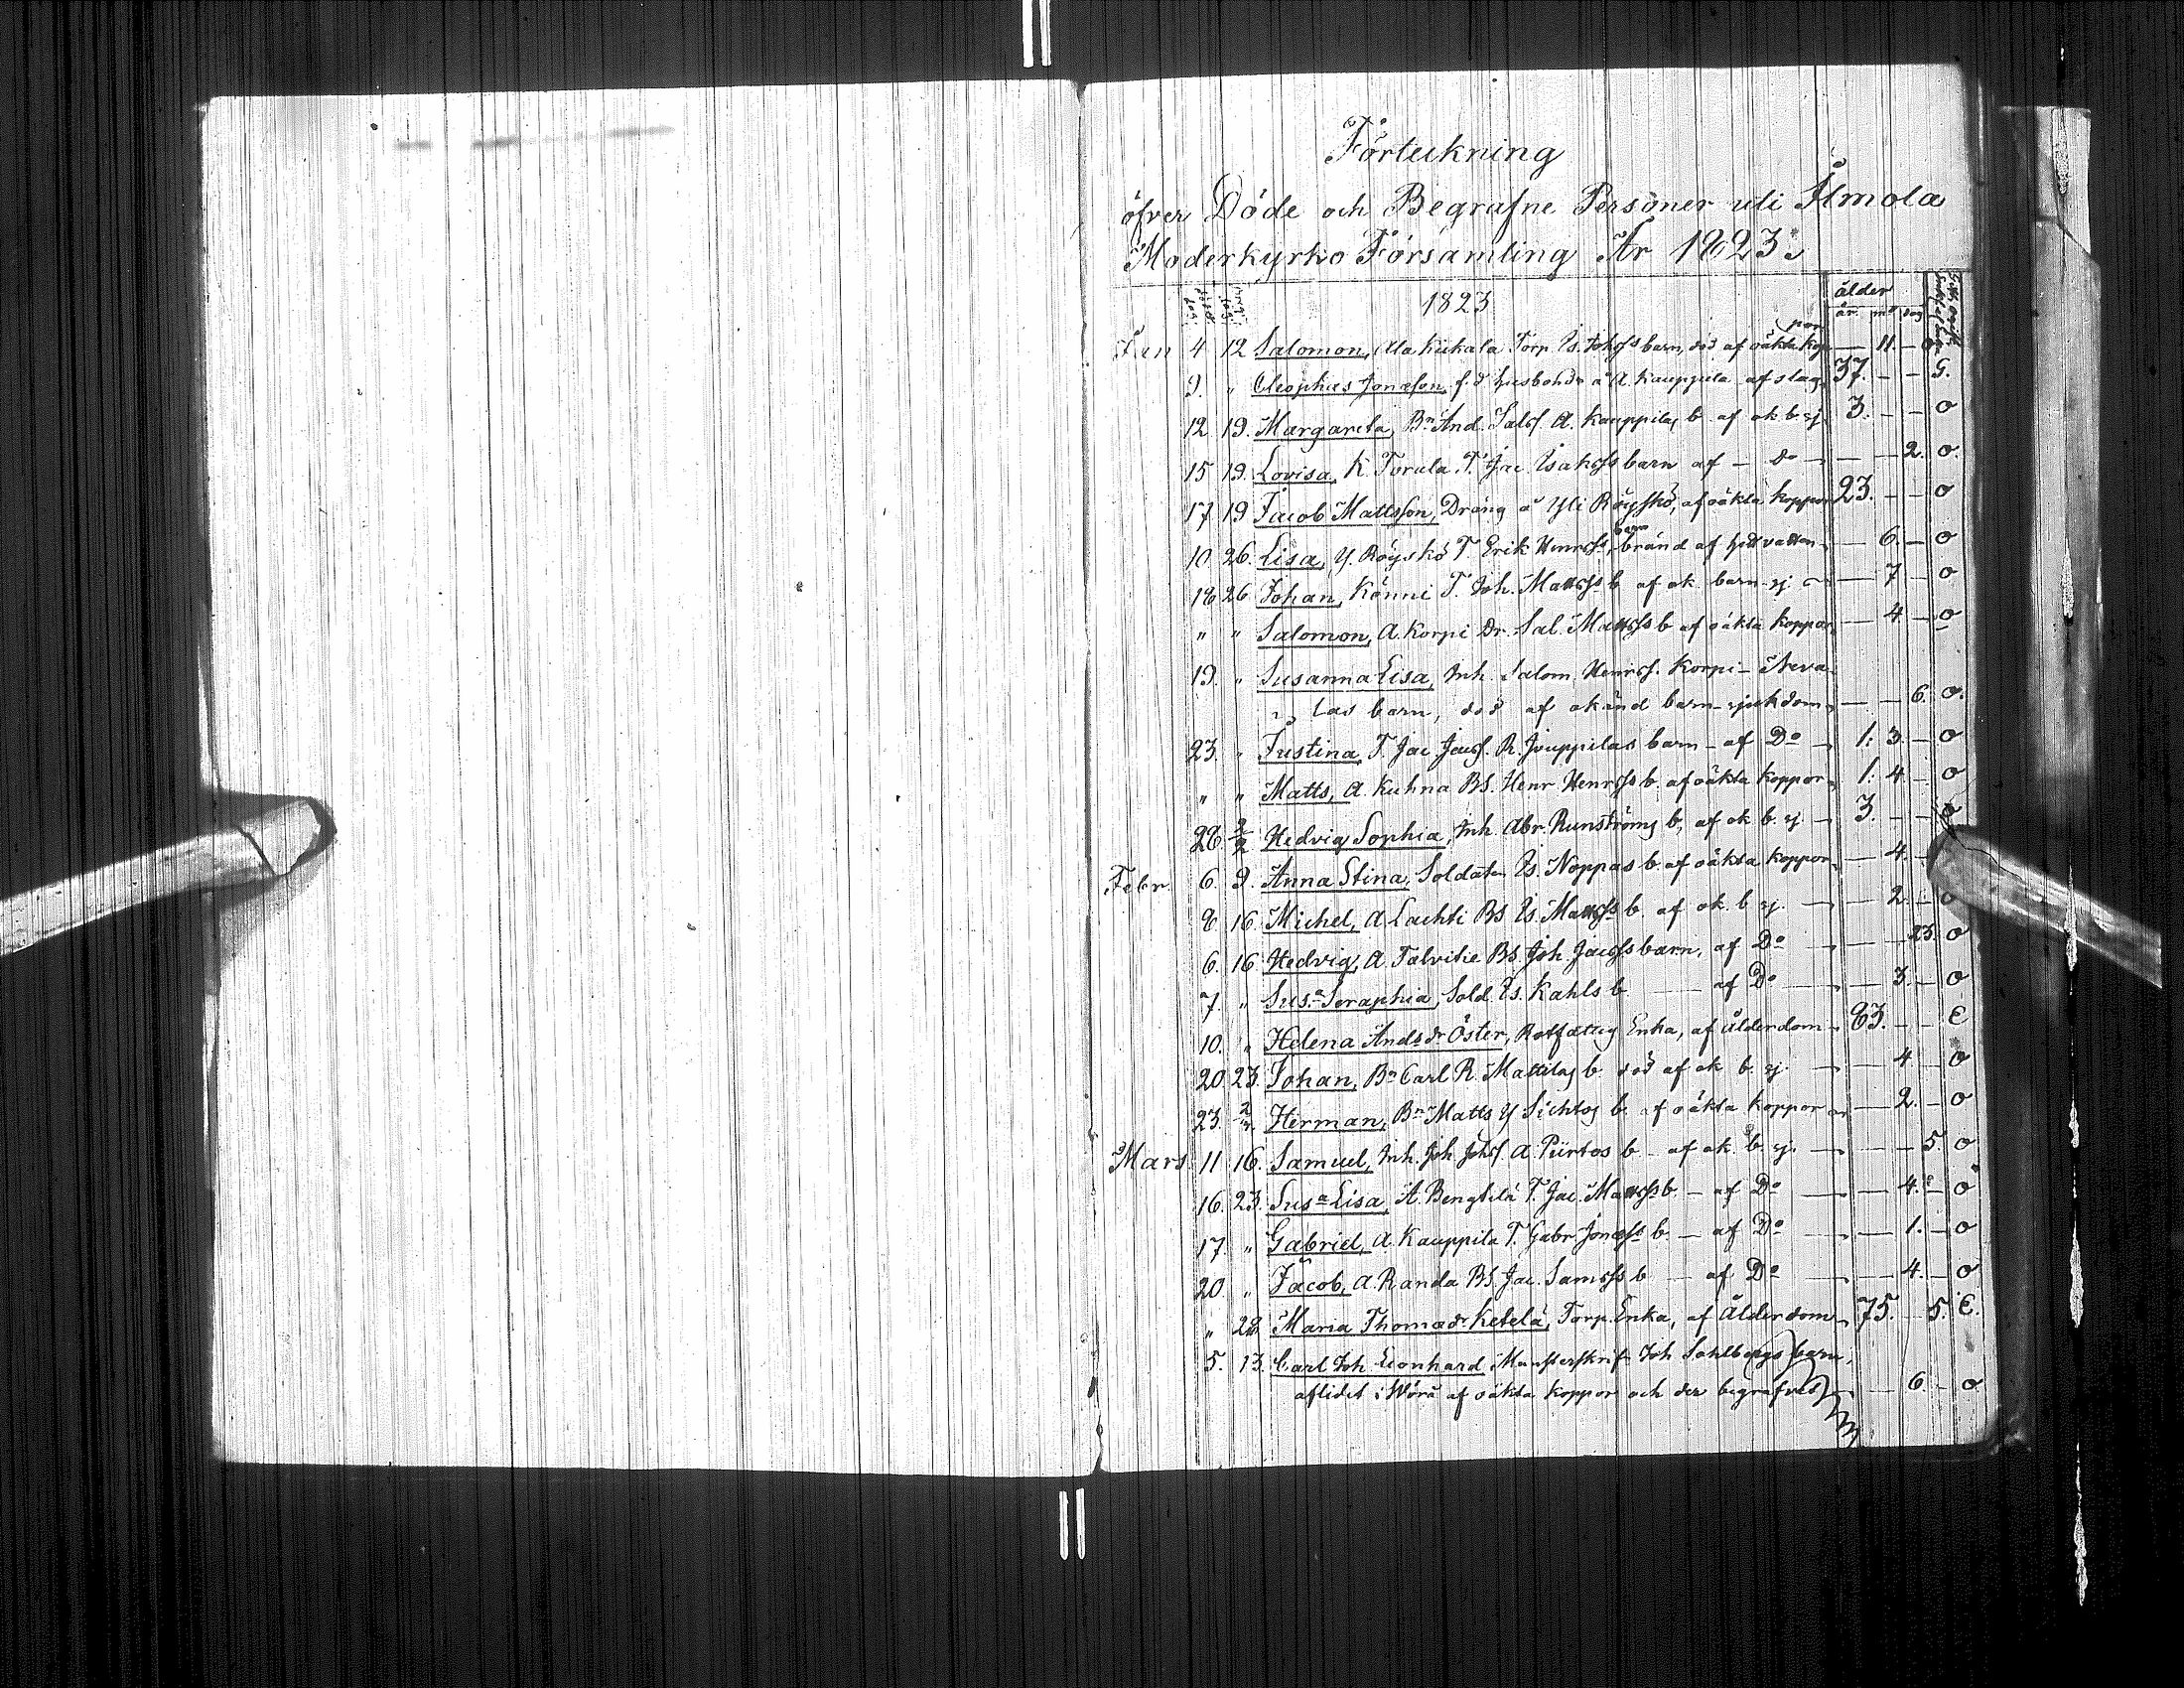 Förteckning
öfver Döde och Begrafne Personer uti Ilmola
Moderkyrko Församling År 1823.
1823
ålder
år. md dag
Jan 4 12 Salomon, Ala Kiikala Torp. Is. Johss barn, död af oäkta koppor — 11. — o
9. " Cleophas Jonasson, f.d husbonde å A. Kauppila af slag, 37. — — G.
12 19. Margareta, Bn And. Salss. A. Kauppilas b. af ok. b. sj. 3. — — o
15 19. Lovisa, K. Torula. T. Jac. Isakss barn af — Do — — — 2. o.
17 19 Jacob Mattsson, Dräng å Yli Röyskö, af oäkta koppor 23. — — o
10 26. Lisa, Y. Röyskö T. Erik Henrss barn, bränd af hett vatten — 6. — o
18 26 Johan, Könni T. Joh. Mattss b. af ok. barn sj. — 7 — o
" " Salomon, A. Korpi Dr. Sal. Mattss b af oäkta koppor, — 4 — o
19. " Susanna Lisa, Inh. Salom. Henrss. Korpi-Neva
las barn, död af okänd barn-sjukdom, — — 6. o.
23. " Justina, T. Jac Jacss. R. Jouppilas barn — af Do — 1: 3. — o
" " Matts, A. Kuhna BS. Henr. Henrss b. af oäkta koppor, 1: 4. — o
28. 2/2 Hedvig Sophia, Inh. Abr. Runströms b. af ok. b. sj. — 3. — — o
Febr. 6. 9. Anna Stina, Soldaten Is. Noppas b. af oäkta koppor, — 4. —
8. 16. Michel, A Lachti BS Is. Mattss b. af ok. b. sj. — — 2. — o
6. 16 Hedvig, A Talvitie BS. Joh. Jacss barn, af Do — — — 23. o
7. " Sus.a Seraphia, Sold. Is. Kahls b. — af Do — — 3. — o
10. " Helena Andsdr Öster, Rotfattig Enka, af ålderdom, 83. — — E
20 23. Johan, Bn Carl R. Mattilas b. död af ok. b. sj. — 4 — o
23. 2/3. Herman, Bn Matts Y Sichtos b. af oäkta koppor — 2. — o
Mars 11 16. Samuel, Inh. Joh. Johss. A. Piirtos b. — af ok. b. sj. — — — 5. o
16. 23. Susa Lisa, A. Bengtila T. Jac. Mattss b. — af Do — — 4. — o
17. " Gabriel, A. Kauppila T. Gabr. Jonass b. — af Do — — 1. — o
20 " Jacob, A. Randa BS. Jac. Samss b — af Do — — 4. — o
" 28 Maria Thomædr Ketelä, Torp. Enka, af Ålderdom, 75. — 5. E.
5. 13. Carl Joh. Leonhard, Mönsterskrif. Joh Sohlbergs barn,
aflidet i Wörå af oäkta koppor och der begrafvet, — 6. — o